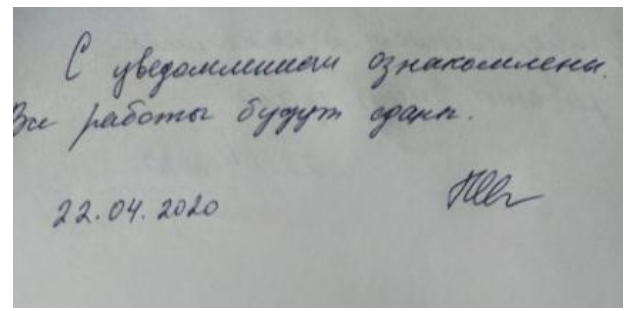 С уведомлением ознакомлены.
Все работы будут сданы.
22.04.2020